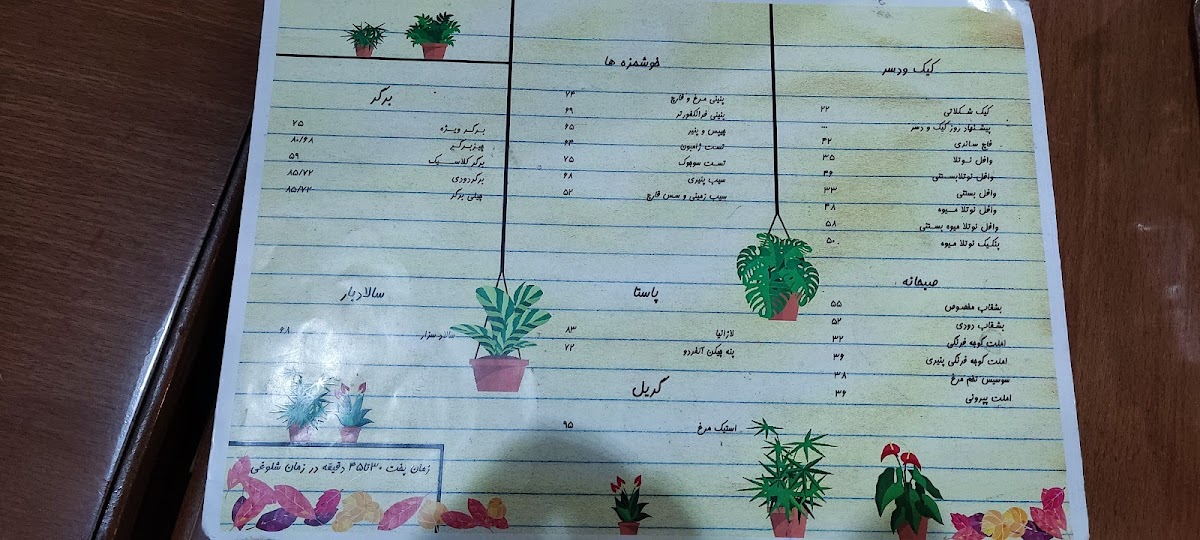 کیک ودسر
کیک شکلاتی ۲۲
پیشنهاد روز کیک و دسر ...
قاچ ساندی ۴۲
وافل نوتلا ۳۵
وافل نوتلابستنی ۴۶
وافل بستنی ۳۳
وافل نوتلا میوه ۴۸
وافل نوتلا میوه بستنی ۵۸
پنکیک نوتلا میوه ۵۰
صبحانه
بشقاب مخصوص ۵۵
بشقاب دودی ۵۲
املت گوجه فرنگی ۳۲
املت گوجه فرنگی پنیری ۳۶
سوسیس تخم مرغ ۳۸
املت پپرونی ۳۶
خوشمزه ها
پنینی مرغ و قارچ ۷۴
پنینی فرانکفورتر ۶۹
چیپس و پنیر ۶۵
تست ژامبون ۶۴
تست سوجوک ۷۵
سیب پنیری ۶۸
سیب زمینی و سس قارچ ۵۲
پاستا
لازانیا ۸۳
پنه چیکن آلفردو ۷۲
گریل
استیک مرغ ۹۵
برگر
برگر ویژه ۷۵
چیزبرگر ۸۰/۶۸
برگر کلاسیک ۵۹
برگر دودی ۸۵/۷۲
چیلی برگر ۸۵/۷۲
سالادبار
سالاد سزار ۶۸
زمان پخت ۳۰تا۴۵ دقیقه در زمان شلوغی